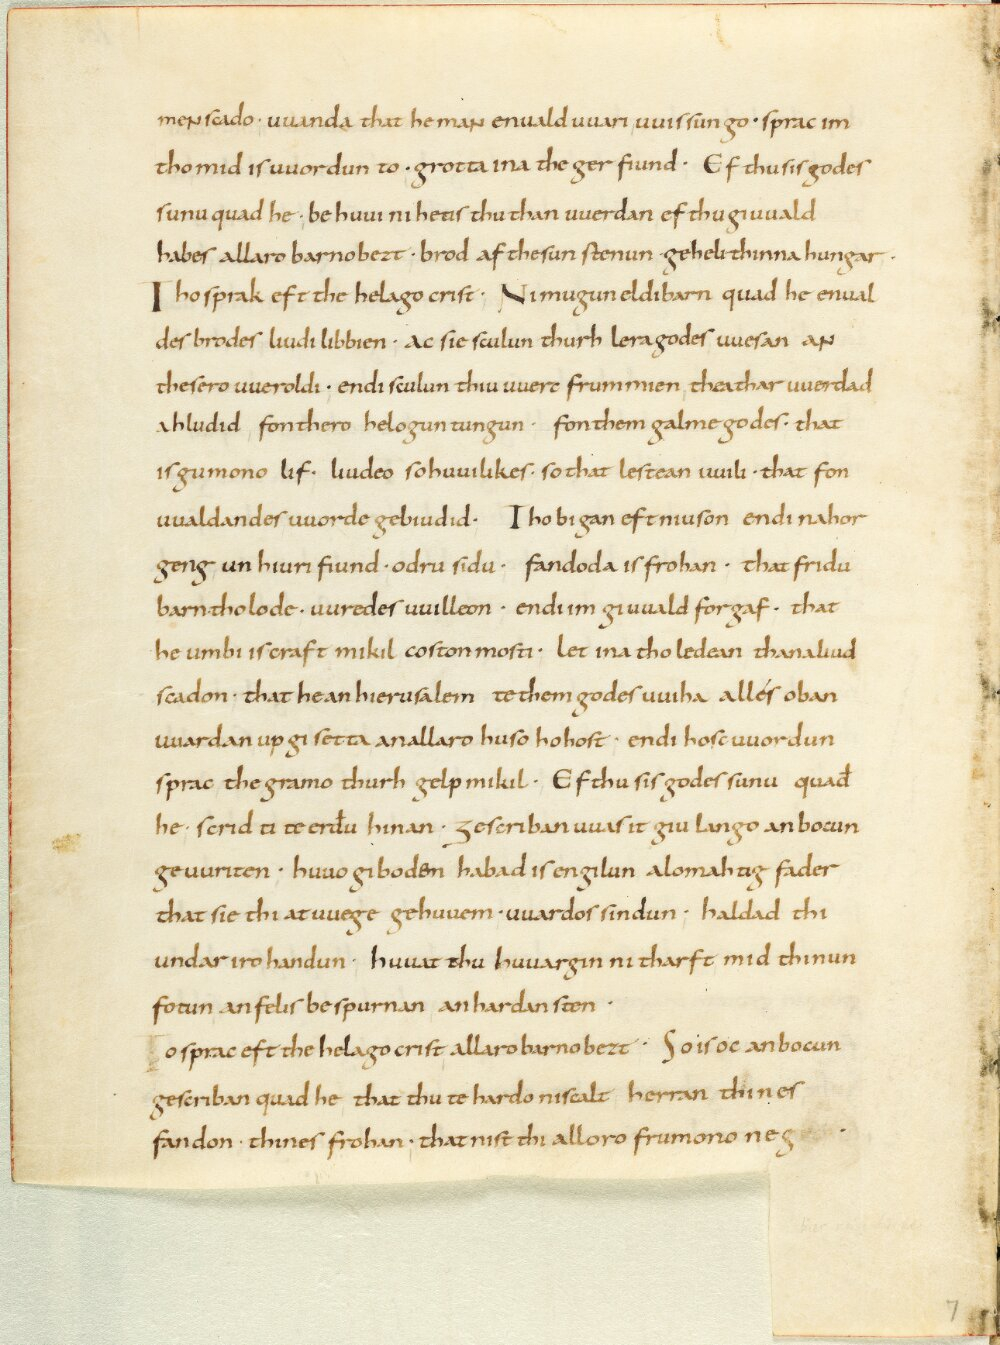 menscado · uuanda that he man enuald uuari uuissungo · sprac im
tho mid is uuordun to · grotta ina the ger fiund · Ef thu sis godes
sunu quad he · be huui ni hetis thu than uuerdan ef thu giuuald
habes allaro barno bezt · brod af thesun stenun · geheli thinna hungar ·
Tho sprak eft the helago crist · Ni mugun eldibarn quad he enual
des brodes liudi libbien · Ac sie sculun thurh lera godes uuesan an
thesero uueroldi · endi sculun thiu uuerc frummien thea thar uuerdad
ahludid fon thero helogun tungun · fon them galme godes · that
is gumono lif · liudeo so huuilikes · so that lestean uuili · that fon
uualdandes uuorde gebiudid · Tho bigan eft niuson endi nahor
geng un hiuri fiund · odru sidu · fandoda is frohan · that fridu
barn tholode · uuredes uuilleon · endi im giuuald forgaf · that
he umbi is craft mikil coston mosti · let ina tho ledean thana liud
scadon · that he an hierusalem te them godes uuiha alles oban
uuardan up gisetta an allaro huso hohost · endi hosc uuordun
sprac the gramo thurh gelp mikil · Ef thu sis godes sunu quađ
he · scrid ti te erđu hinan · Gescriban uuas it giu lango an bocun
geuuriten · huuo giboden habad is engilun alomahtig fader
that sie thi at uuege gehuuem · uuardos sindun · haldad thi
undar iro handun · huuat thu huuargin ni tharft mid thinun
fotun an felis bespurnan an hardan sten ·
o sprac eft the helago crist allaro barno bezt · So is oc an bocun
gescriban quad he that thu te hardo ni scalt herran thines
fandon · thines frohan · that nist thi alloro frumono neg
7